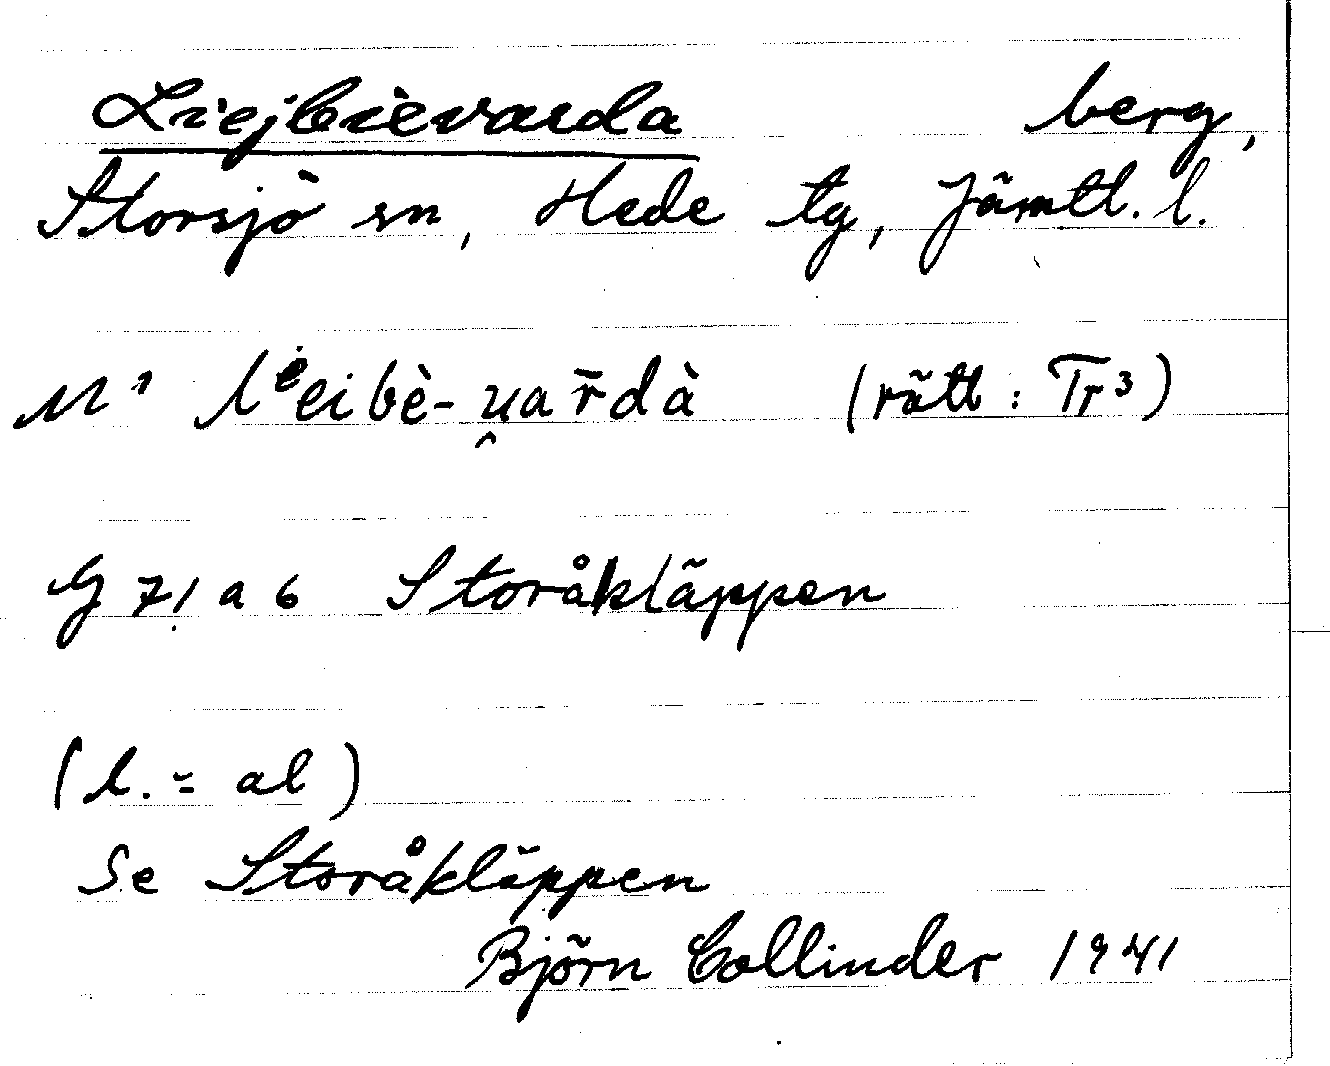 Liejbievarda berg,
Storsjö sn, Hede tg, Jämtl. l.
M¹ lᵉeibè-u̯ar̄dà (rätt: Tr³)
G 71 a 6 Storåkläppen
(l. = al)
Se Storåkläppen
Björn Collinder 1941